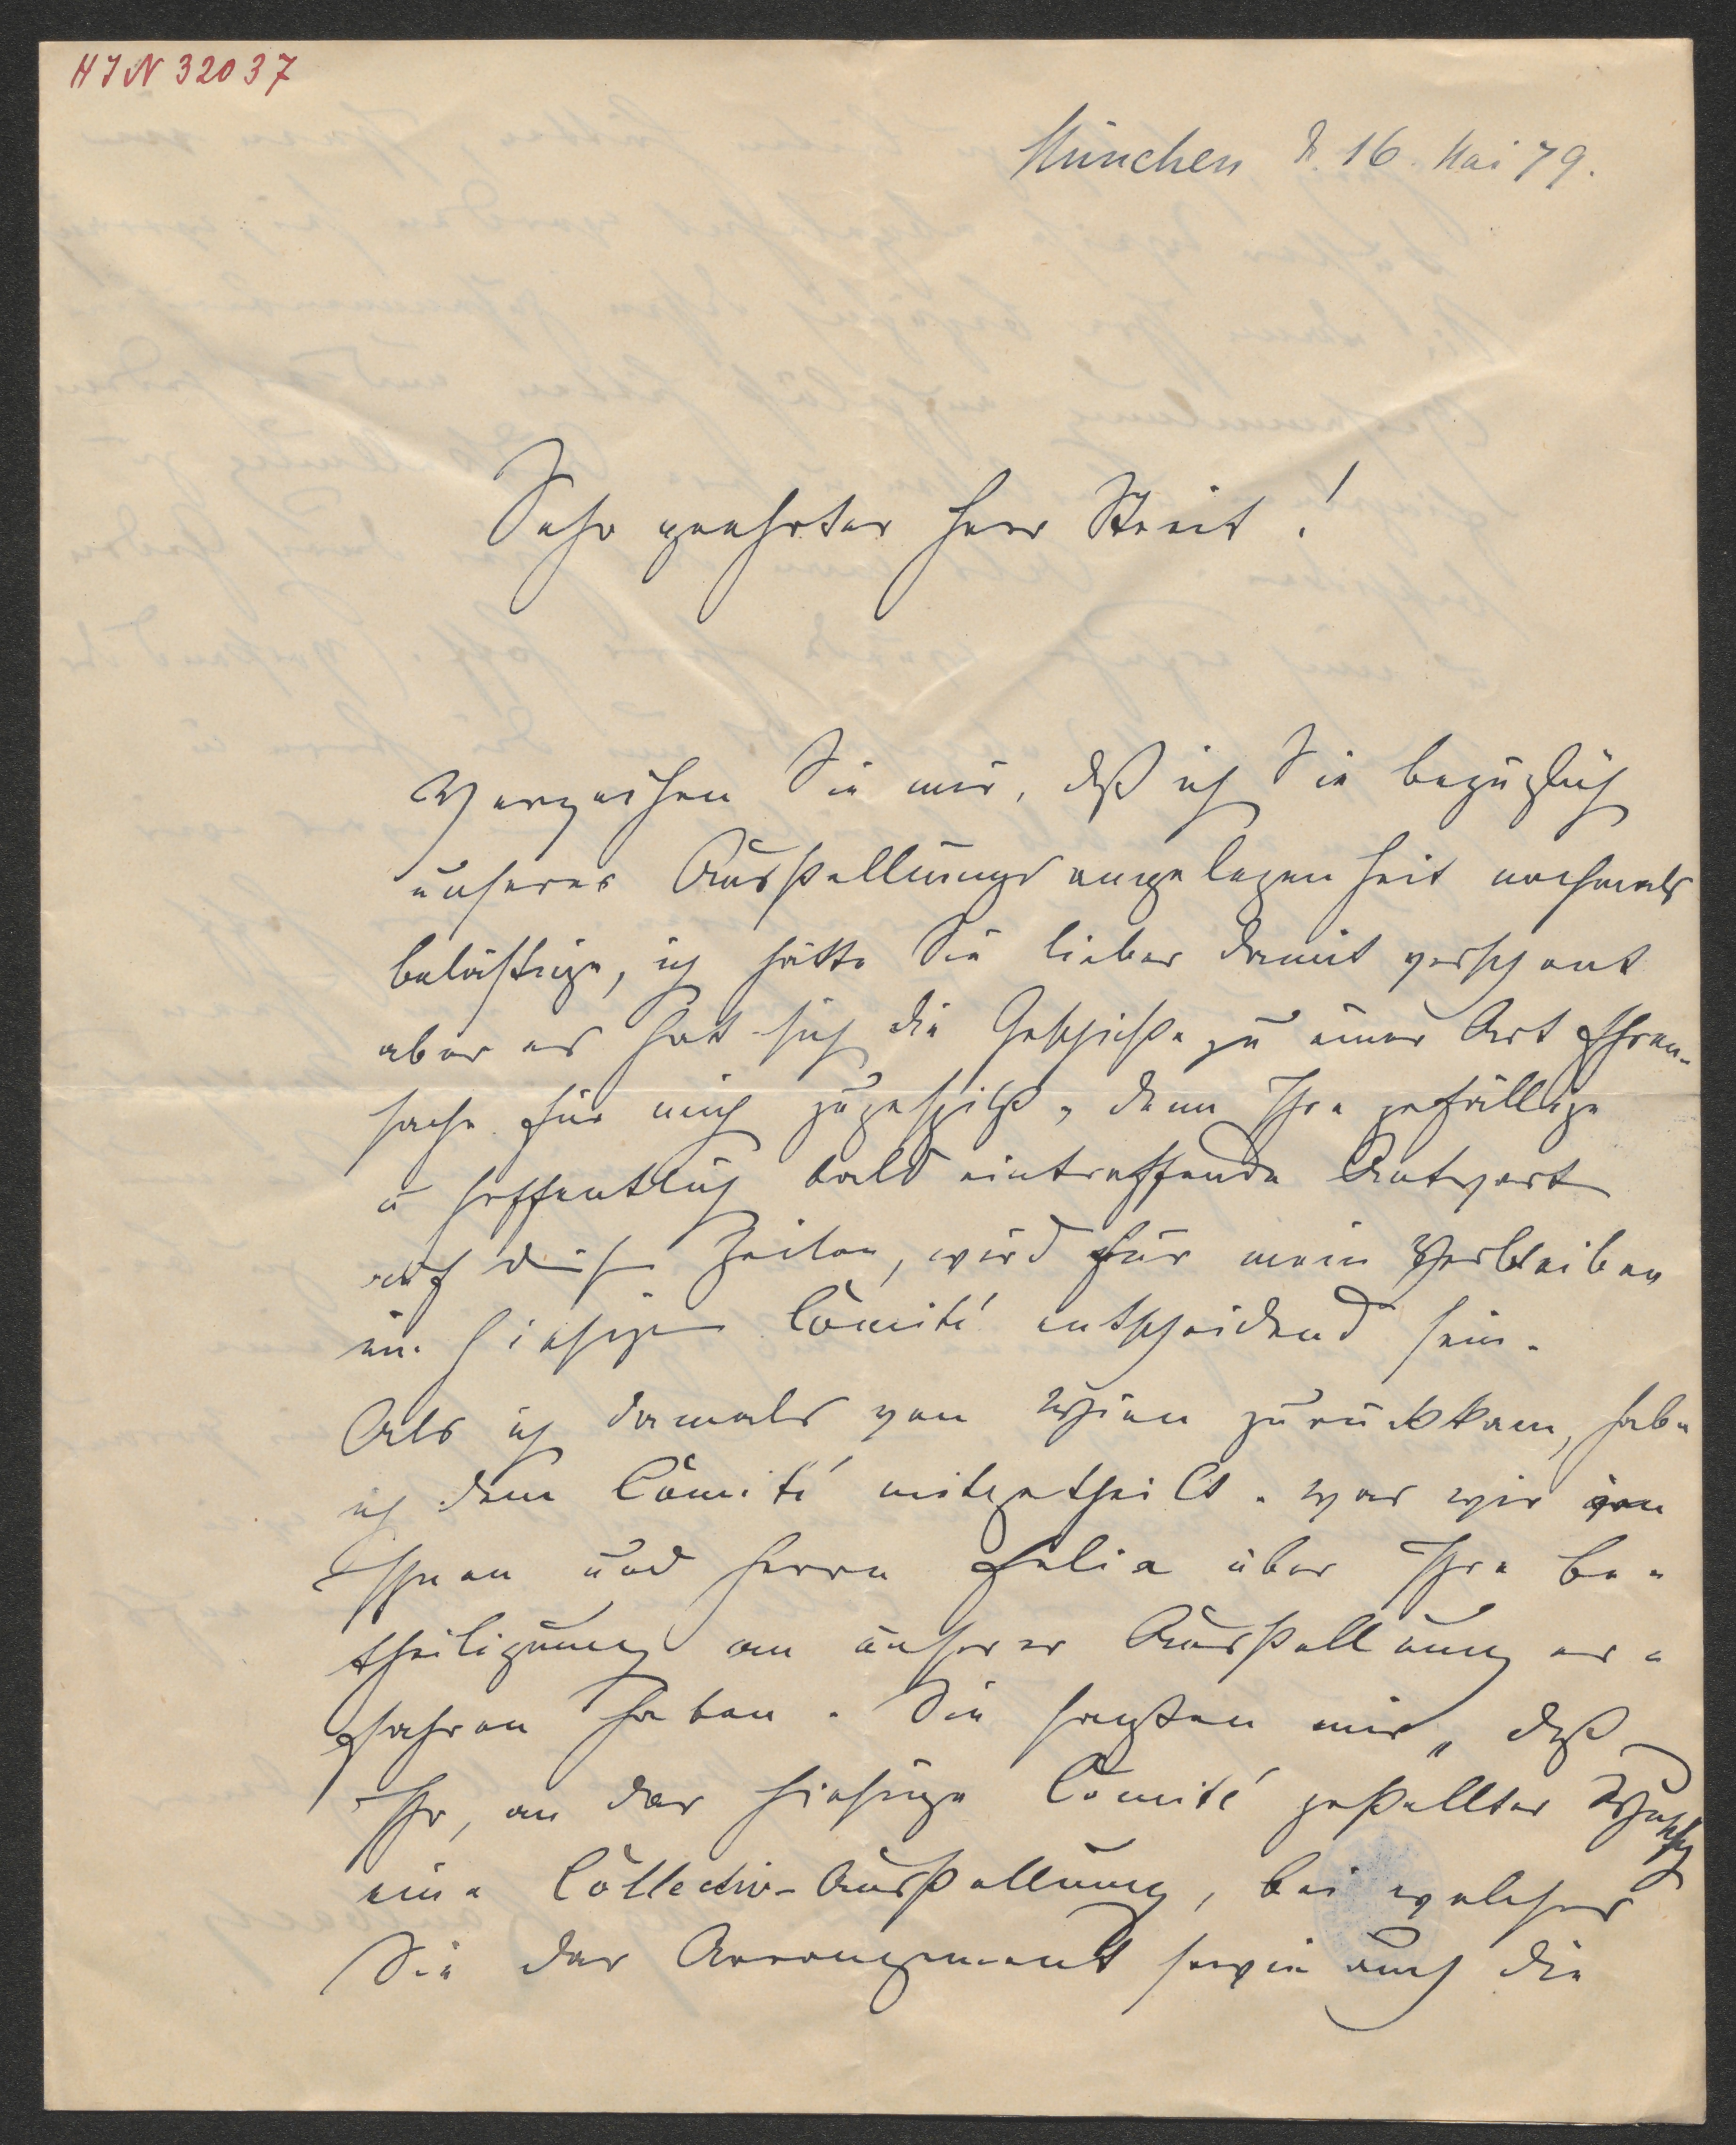 HIN 32037
München d. 16. Mai 79.
Sehr geehrter Herr Streit!
Verzeihen Sie mir, daß ich Sie bezüglich
unserer Ausstellungsangelegenheit nochmals
belästige, ich hätte Sie lieber damit verschont
aber es hat sich die Geschichte zu einer Art Ehren-
sache für mich zugespitzt, denn Ihre gefällige
u hoffentlich bald eintreffende Antwort
auf diese Zeilen, wird für mein Verbleiben
im hiesigen Comité entscheidend sein.
Als ich damals von Wien zurückkam, habe
ich dem Comité mitgetheilt, was wir von
Ihnen und Herrn Felix über Ihre Be-
theiligung an unserer Ausstellung er-
fahren haben. Sie sagten mir, daß
Ihr, an das hiesige Comité gestellter Wunsch
eine Collectiv-Ausstellung, bei welcher
Sie das Arrangement sowie auch die